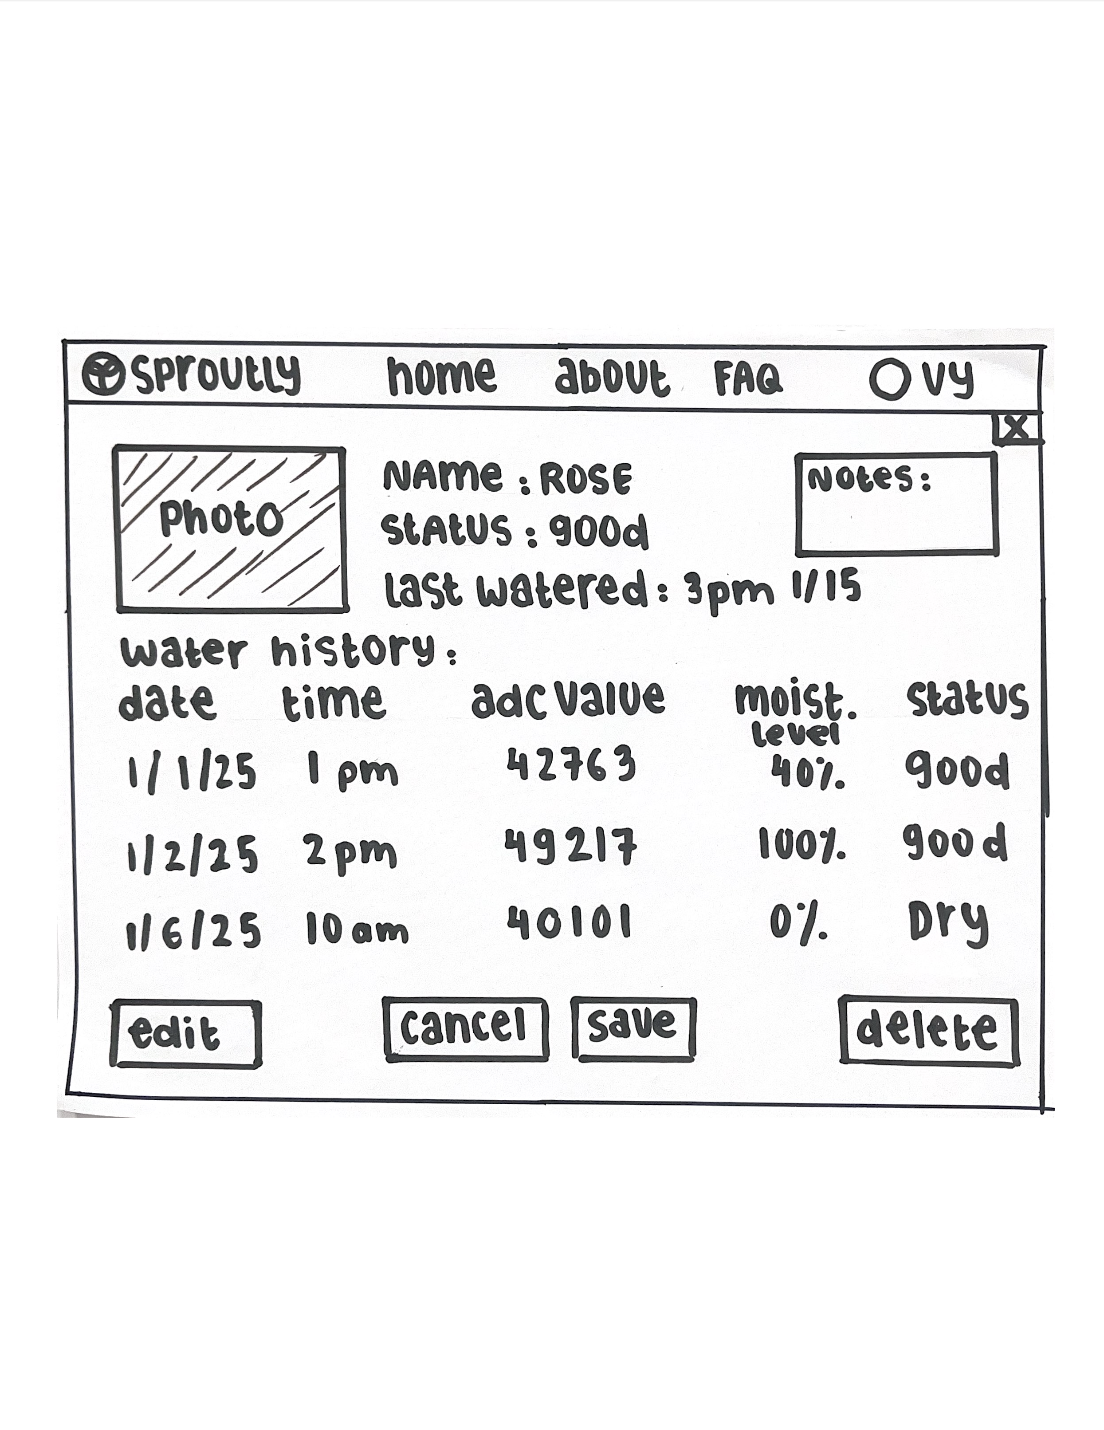 sproutly home about FAQ vy
X
Photo
NAme : ROSE
StAtUS : good
Last watered : 3pm 1/15
Notes :
water history :
date time adc value moist. level status
1/1/25 1 pm 42763 40% good
1/2/25 2 pm 49217 100% good
1/6/25 10 am 40101 0% Dry
edit cancel save delete